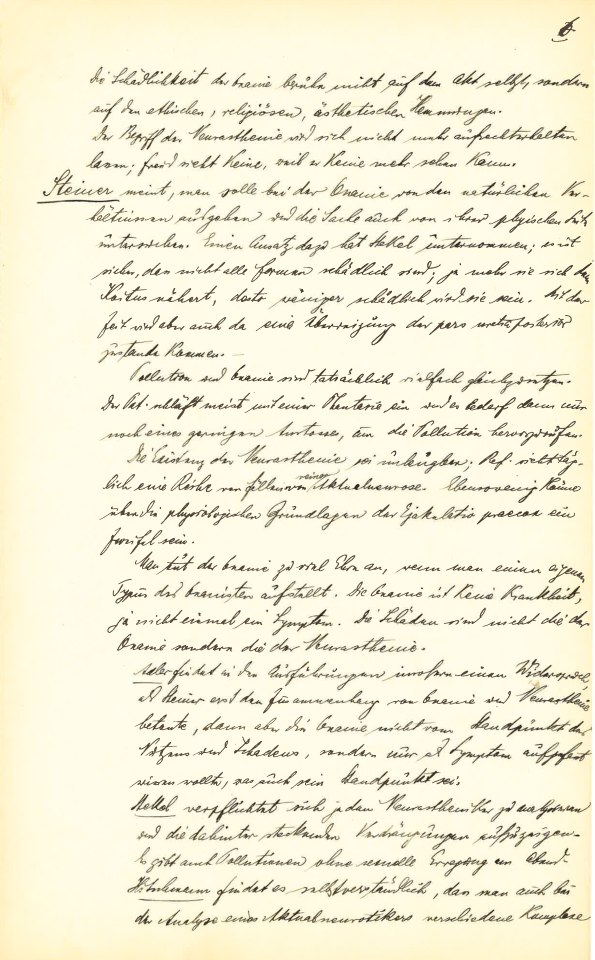 6
die Schädlichkeit der Onanie beruhe nicht auf dem Akt selbst, sondern
auf den ethischen, religiösen, ästhetischen Hemmungen.
Der Begriff der Neurasthenie wird sich nicht mehr aufrechterhalten
lassen; Freud sieht keine, weil er keine mehr sehen kann.
Steiner meint, man solle bei der Onanie von den natürlichen Ver-
hältnissen ausgehen und die Sache auch von ihrer physischen Seite
untersuchen. Einen Ansatz dazu hat Stekel unternommen; es ist
sicher, dass nicht alle Formen schädlich sind; je mehr sie sich dem
Koitus nähert, desto weniger schädlich wird sie sein. Mit der
Zeit wird aber auch da eine Überreizung der pars uretra posterior
zustande kommen.—
Pollution und Onanie sind tatsächlich vielfach gleichzusetzen.
Der Pat. schläft meist mit einer Phantasie ein und es bedarf dann nur
noch eines geringen Anstosses, um die Pollution hervorzurufen.
Die Existenz der Neurasthenie sei unleugbar; Ref. sieht täg-
lich eine Reihe von Fällen von reiner Aktualneurose. Ebensowenig könne
über die physiologischen Grundlagen der Ejakulatio praecox ein
Zweifel sein.
Man tut der Onanie zu viel Ehre an, wenn man einen eigenen
Typus des Onanisten aufstellt. Die Onanie ist keine Krankheit,
ja nicht einmal ein Symptom. Die Schäden sind nicht die der
Onanie sondern die der Neurasthenie.
Adler findet in den Ausführungen insofern einen Widerspruch,
als Steiner erst den Zusammenhang von Onanie und Neurasthenie
betonte, dann aber die Onanie nicht vom Standpunkt des
Nutzens und Schadens, sondern nur als Symptom aufgefasst
wissen wollte, was auch sein Standpunkt sei.
Stekel verpflichtet sich jeden Neurastheniker zu analysieren
und die dahinter steckenden Verdrängungen aufzuzeigen.
Es gibt auch Pollutionen ohne sexuelle Erregung am Abend.
Hitschmann findet es selbstverständlich, dass man auch bei
der Analyse eines Aktualneurotikers verschiedene Komplexe